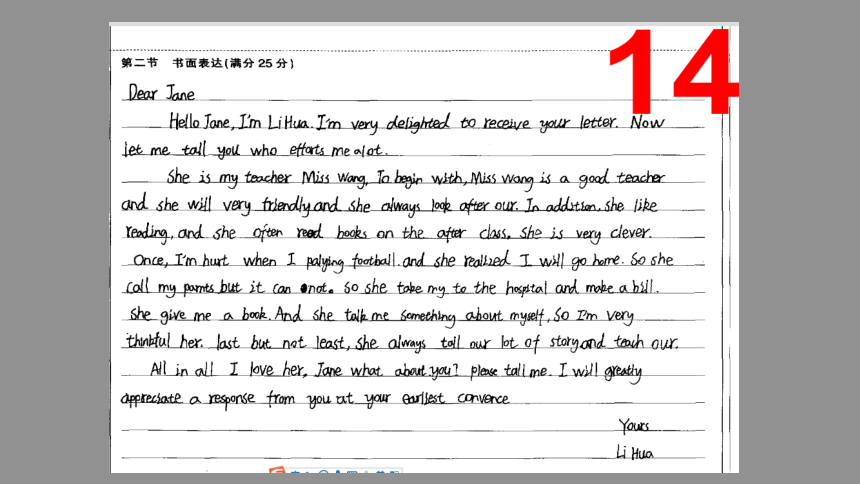 14
第二节 书面表达(满分 25 分)
Dear Jane
Hello Jane, I'm Li Hua. I'm very delighted to receive your letter. Now
let me tall you who efforts me a lot.
She is my teacher Miss Wang, To begin with, Miss Wang is a good teacher
and she will very friendly and she always look after our. In addition, she like
reading, and she often read books on the after class. She is very clever.
Once, I'm hurt when I palying football. and she realized I will go home. So she
call my parnts but it can not. so she take my to the hospital and make a bill.
She give me a book. And she talk me something about myself, So I'm very
thinkful her. last but not least, she always tall our lot of story and teach our.
All in all I love her, Jane what about you? please tall me. I will greatly
appreciate a response from you at your earliest convence
Yours
Li Hua